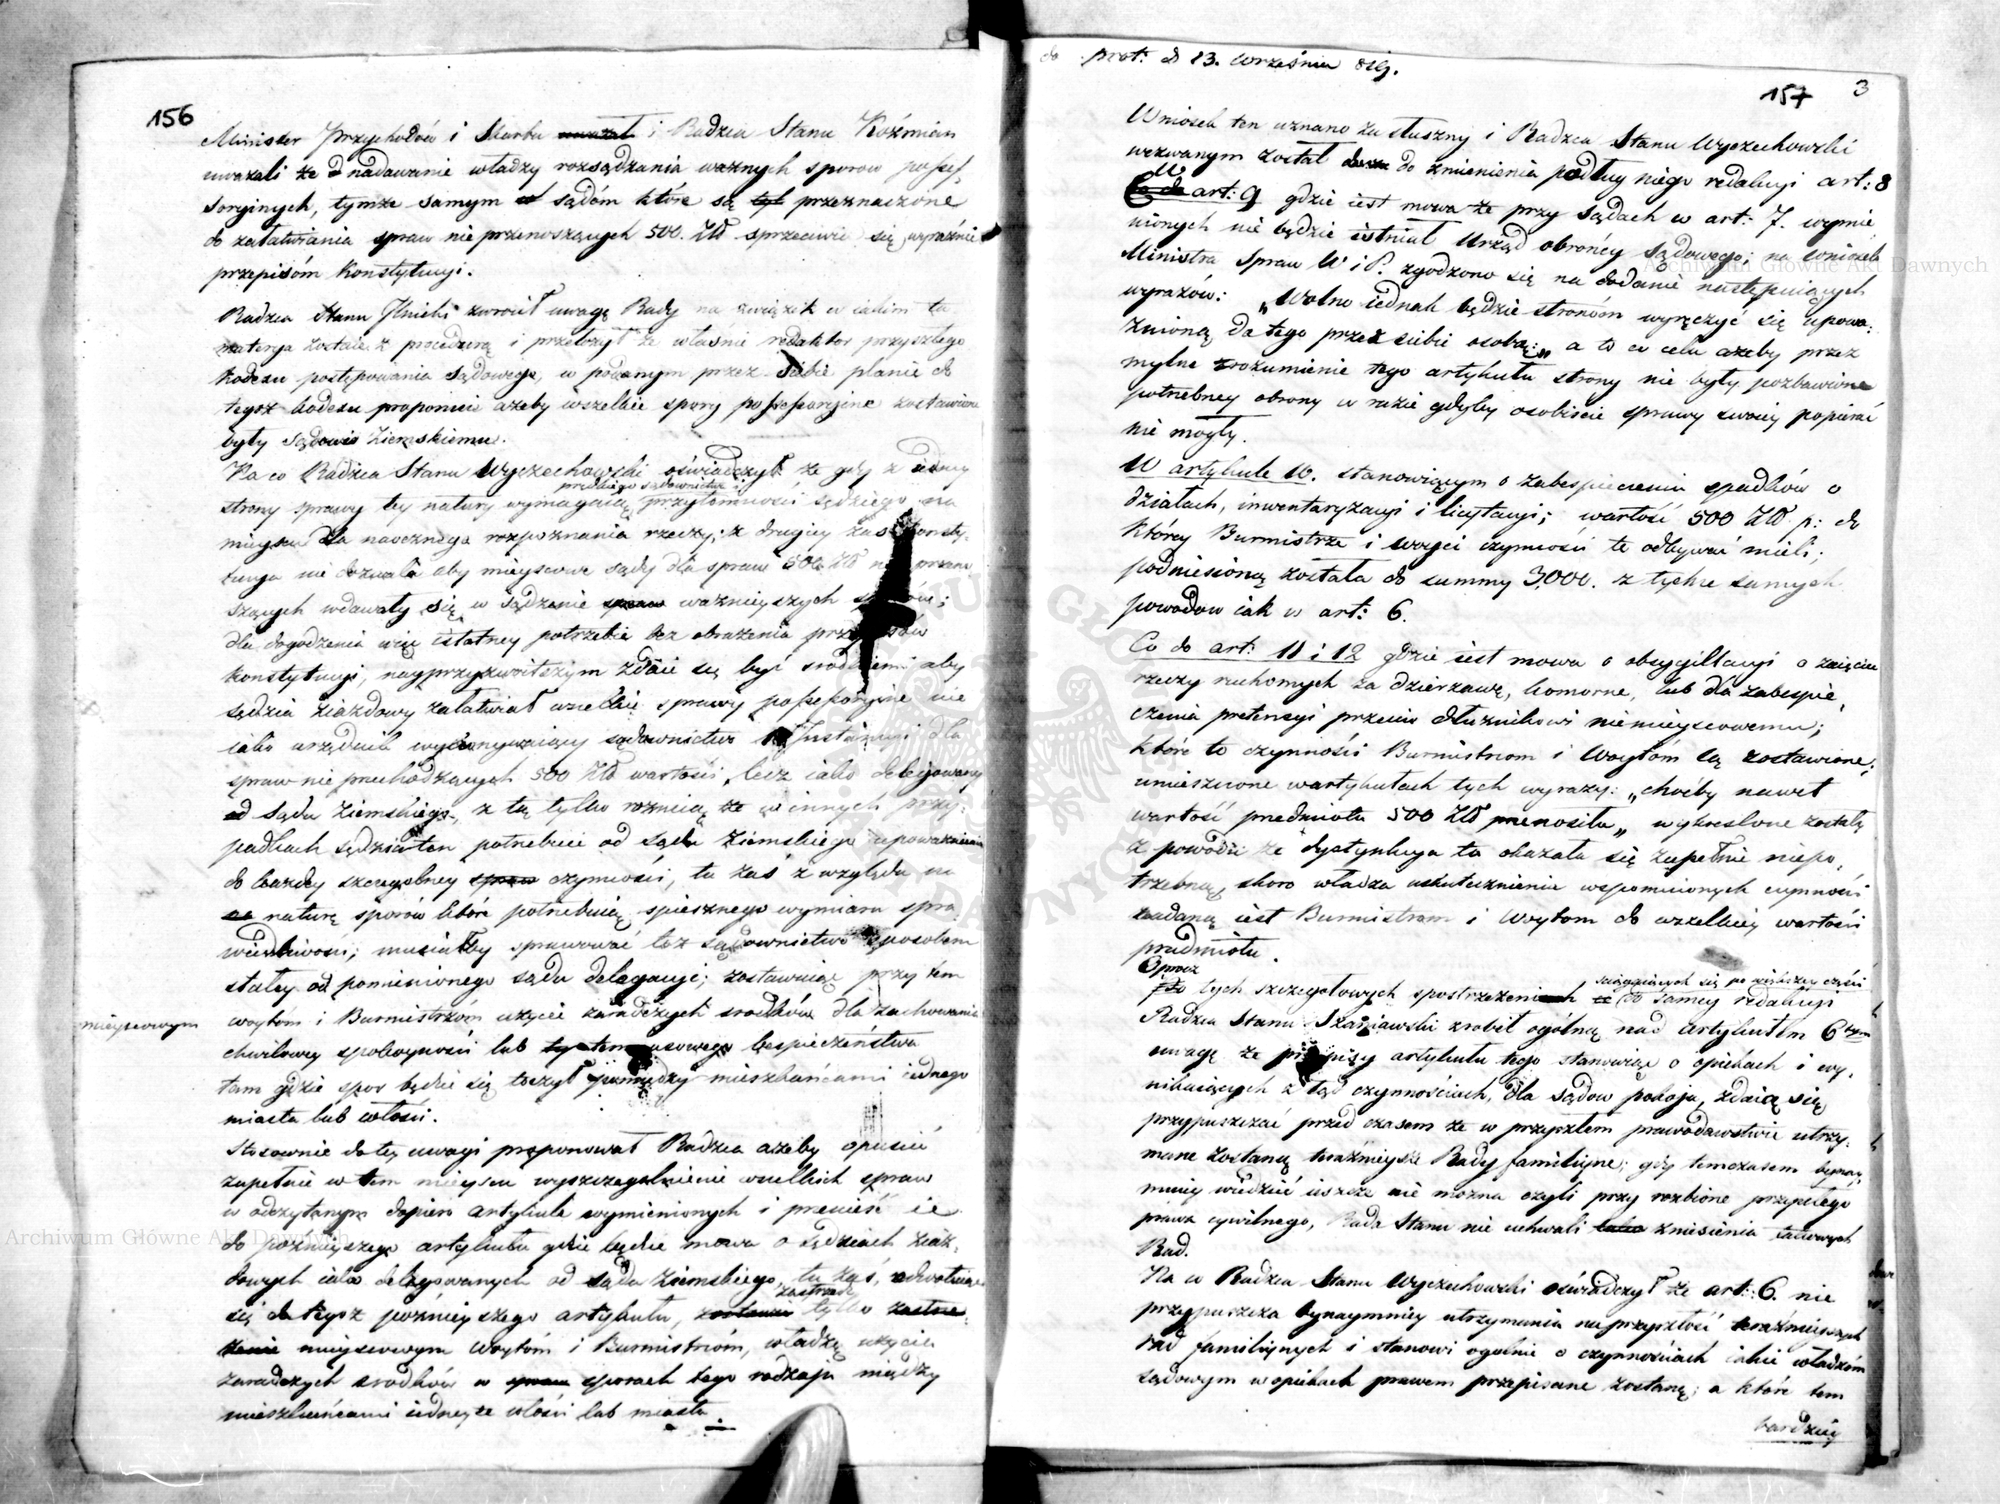 156
Minister Przychodów i Skarbu uważał i Radzca Stanu Koźmian
uważali że nadawanie władzy rozsądzania ważnych sporow posses-
soryinych, tymże samym sądóm które są przeznaczone
do załatwiania spraw nieprzenoszących 500. Złł sprzeciwia się wyraźnie
przepisóm Konstytucyi.
Radzca Stanu zwrócił uwagę Rady na związek w iakim ta
materya zostaie z procedurą i przełożył że właśnie redaktor przyszłego
Kodexu postępowania Sądowego, w podanym przez siebie planie do
tegoż kodexu proponuie ażeby wszelkie spory possessoryine zostawione
były Sądowi Ziemskiemu.
Na co Radzca Stanu Wyczechowski oświadczył że gdy z iedney
prędkiego sądownictwa i
strony sprawy tey natury wymagaią przytomności sędziego na
mieyscu dla naocznego rozpoznania rzeczy; z drugiey zaś Konsty-
tucya nie dozwala aby mieyscowe sądy dla spraw 500 Złł nie przeno
szących wdawały się w sądzenie spraw ważnieyszych sporów;
dla dogodzenia więc istotney potrzebie bez obrażenia przepisów
konstytucyi, nayprzyzwoitszym zdaie się być środkiem aby
sędzia ziazdowy załatwiał wszelkie sprawy possessoryine nie
iako urzędnik wykonywaiący sądownictwo Instancyi dla
spraw nieprzechodzących 500 Złł wartości, lecz iako delegowany
od sądu Ziemskiego, z tą tylko roznicą że w innych przy-
padkach sędzia ten potrzebuie od sądu Ziemskiego upoważnienia
do każdey szczegolney spraw czynności, tu zaś z względu na
naturę sporów które potrzebuią spiesznego wymiaru spra-
wiedliwości; musiałby sprawować toż sądownictwo sposobem
stałey od pomienionego sądu delegacyi; zostawuiąc przytem
mieyscowym
woytóm i Burmistrzóm użycie zaradczych srodków dla zachowania
chwilowey spokoyności lub bespieczeństwa
tam gdzie spor będzie się toczył pomiędzy mieszkańcami iednego
miasta lub włości.
Stosownie do tey uwagi proponował Radzca ażeby opuścić
zupełnie w tem mieyscu wyszczegolnienie wszelkich spraw
w odczytanym dopiero artykule wymienionych i przenieść ie
do poznieyszego artykułu gdzie będzie mowa o sędziach ziaz-
dowych iako delegowanych od sądu Ziemskiego, tu zaś, odwołuiąc
zastrzedz
się do tegoż poźnieyszego artykułu, tylko
mieyscowym Woytóm i Burmistrzóm, władzę użycia
zaradczych srodków w spraw sporach tego rodzaju między
mieszkańcami iedneyże włości lub miasta.
do prot: d 23. Września 819.
157
3
Wniosek ten uznano za słuszny i Radzca Stanu Wyczechowski
wezwanym został do zmienienia podług niego redakcyi art: 8
W
Co do art: 9 gdzie iest mowa że przy Sądach w art: 7. wymie
nionych nie będzie istniał Urząd obrońcy Sądowego; na wniosek
Ministra Spraw W i P. zgodzono się na dodanie następuiących
wyrazów: „Wolno iednak będzie stronóm wyręczyć się upowa:
żnioną do tego przez siebie osobą;„ a to w celu ażeby przez
mylne zrozumienie tego artykułu strony nie były pozbawione
potrzebney obrony w razie gdyby osobiście sprawy swoiey popierać
nie mogły.
W artykule 10. stanowiącym o zabespieczeniu spadków o
działach, inwentaryzacyi i licytacyi; wartość 500 Złł p: do
którey Burmistrze i woyci czynności te odbywać mieli;
podniesioną została do summy 3,000. z tychże samych
powodow iak w art: 6.
Co do art: 11 i 12 gdzie iest mowa o obsygillacyi o zaięciu
rzeczy ruchomych za dzierżawę, komorne, lub dla zabespie-
czenia pretensyi przeciw dłużnikowi niemieyscowemu;
które to czynności Burmistrzom i Woytóm są zostawione;
umieszczone w artykułach tych wyrazy: „choćby nawet
wartość przedmiotu 500 Złł przenosiła„ wykreślone zostały
z powodu że dystynkcya ta okazała się zupełnie niepo-
trzebną, skoro władza uskutecznienia wspomnionych czynności
nadaną iest Burmistrzom i Woytom do wszelkiey wartości
przedmiotu.
Oprocz
ściągaiących się po większey części
tych szczegołowych spostrzeżeń do samey redakcyi
Radzca Stanu Szaniawski zrobił ogólną nad artykułem 6tym
uwagę że przepisy artykułu tego stanowiąc o opiekach i wy-
nikaiących z tąd czynnościach, dla sądow pokoju, zdaią się
przypuszczać przed czasem że w przyszłem prawodawstwie utrzy-
mane zostaną teraźnieysze Rady familiyne; gdy tymczasem bynay-
mniey wiedzieć ieszcze nie można czyli przy rozbiorze przyszłego
prawa cywilnego, Rada Stanu nie uchwali zniesienia takowych
Rad.
Na co Radzca Stanu Wyczechowski oświadczył że art: 6. nie
przypuszcza bynaymniey utrzymania na przyszłość teraźnieyszych
rad familiynych i stanowi ogolnie o czynnościach iakie władzóm
sądowym w opiekach prawem przepisane zostaną; a które tem
bardziey
Archiwum Główne Akt Dawnych
Archiwum Główne Akt Dawnych